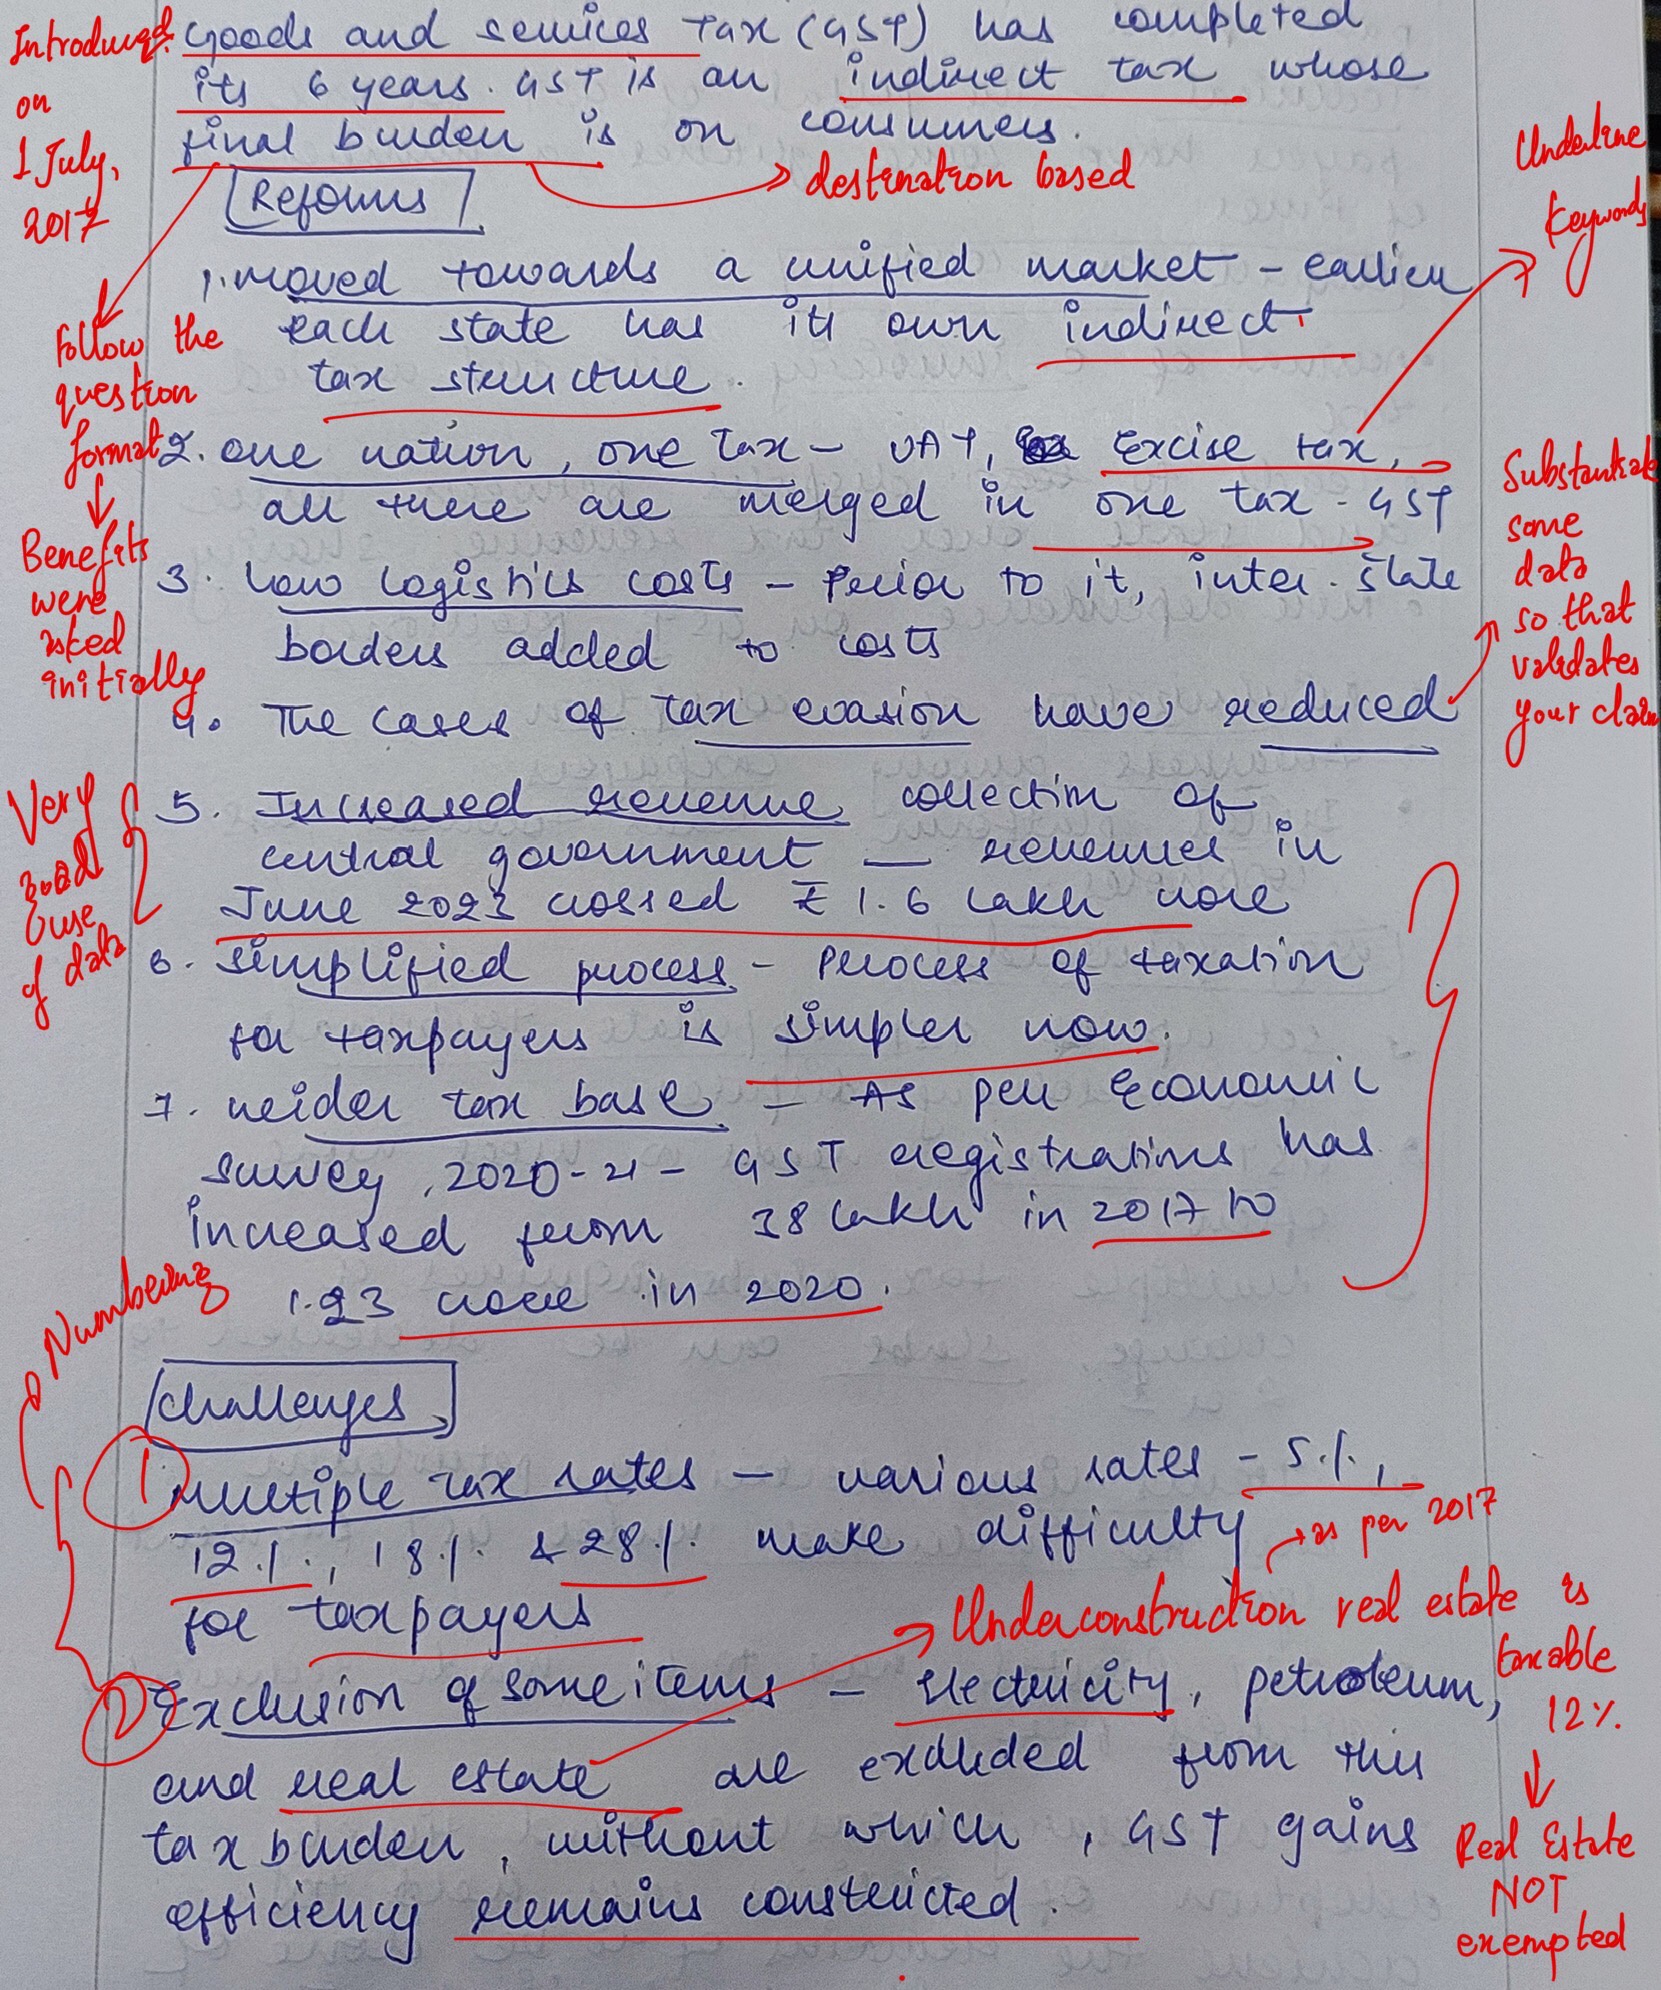 Goods and services Tax (GST) has completed
its 6 years. GST is an indirect tax whose
final burden is on consumers.
Introduced
on
1 July,
2017
destination based
Underline
Keywords
Reforms
1. moved towards a unified market - earlier
each state has its own indirect
tax structure.
Follow the
question
format
Benefits
were
asked
initially
2. one nation, one tax - VAT, Excise tax,
all these are merged in one tax - GST
3. low logistics costs - Prior to it, inter-state
borders added to costs
4. The cases of tax evasion have reduced
Substantiate
some
data
so that
validates
your claim
5. Increased revenue collection of
central government — revenues in
June 2023 crossed ₹ 1.6 lakh crore
Very
good
use
of data
6. simplified process - Process of taxation
for taxpayers is simpler now.
7. weider tax base - As per Economic
survey, 2020-21 - GST registrations has
increased from 38 lakh in 2017 to
1.23 crore in 2020.
Numbering
Challenges
1 Multiple tax rates - various rates - 5%,
12%, 18% & 28% make difficulty
for taxpayers
as per 2017
Underconstruction real estate is
taxable
12%
Real Estate
NOT
exempted
2 Exclusion of some items - electricity, petroleum,
and real estate are excluded from this
tax burden, without which, GST gains
efficiency remains constricted.